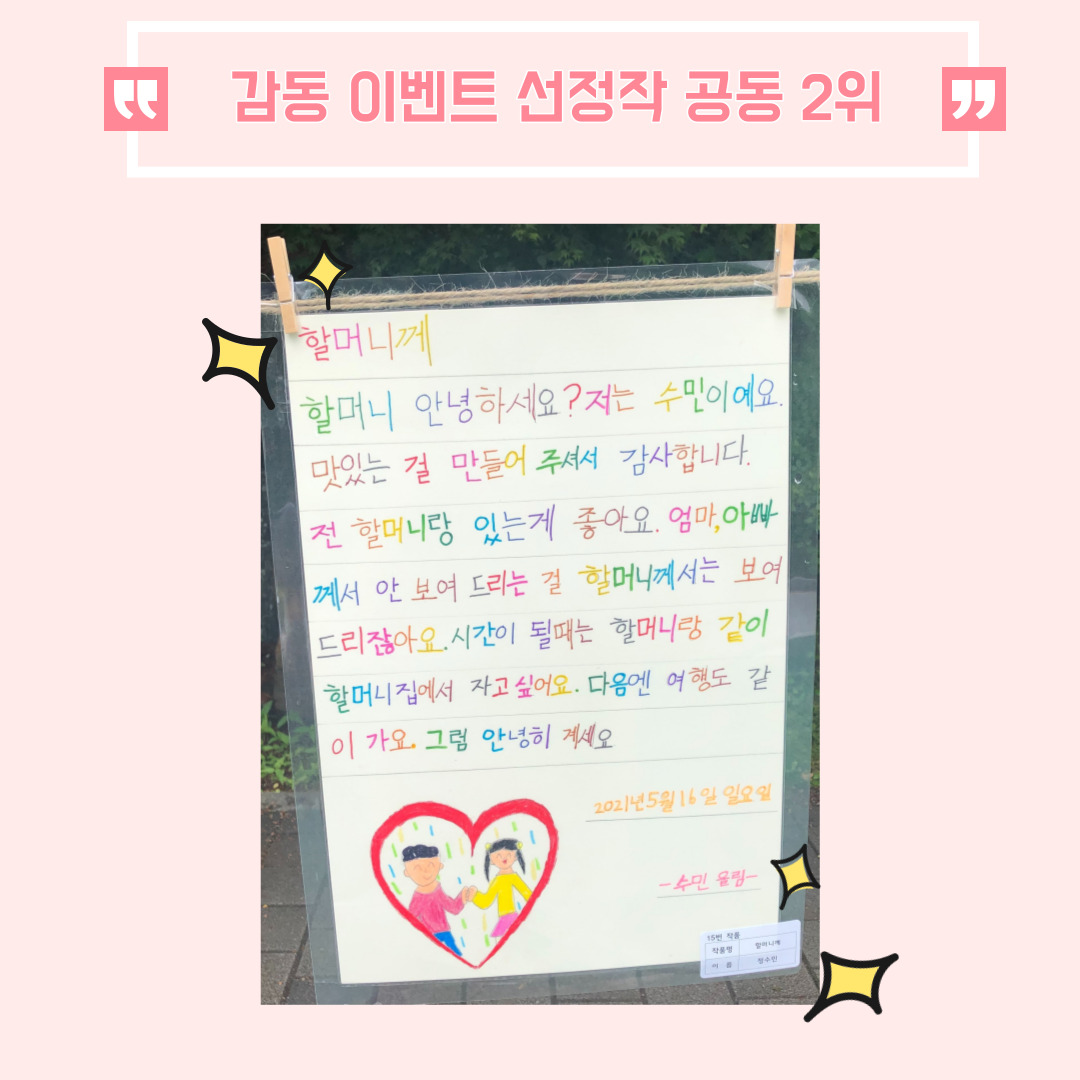 감동 이벤트 선정작 공동 2위
할머니께
할머니 안녕하세요? 저는 수민이예요.
맛있는 걸 만들어 주셔서 감사합니다.
전 할머니랑 있는게 좋아요. 엄마, 아빠
께서 안 보여 드리는 걸 할머니께서는 보여
드리잖아요. 시간이 될때는 할머니랑 같이
할머니집에서 자고싶어요. 다음엔 여행도 같
이 가요. 그럼 안녕히 계세요
2021년 5월 16일 일요일
-수민 올림-
15번 작품
작품명 할머니께
이 름 정수민